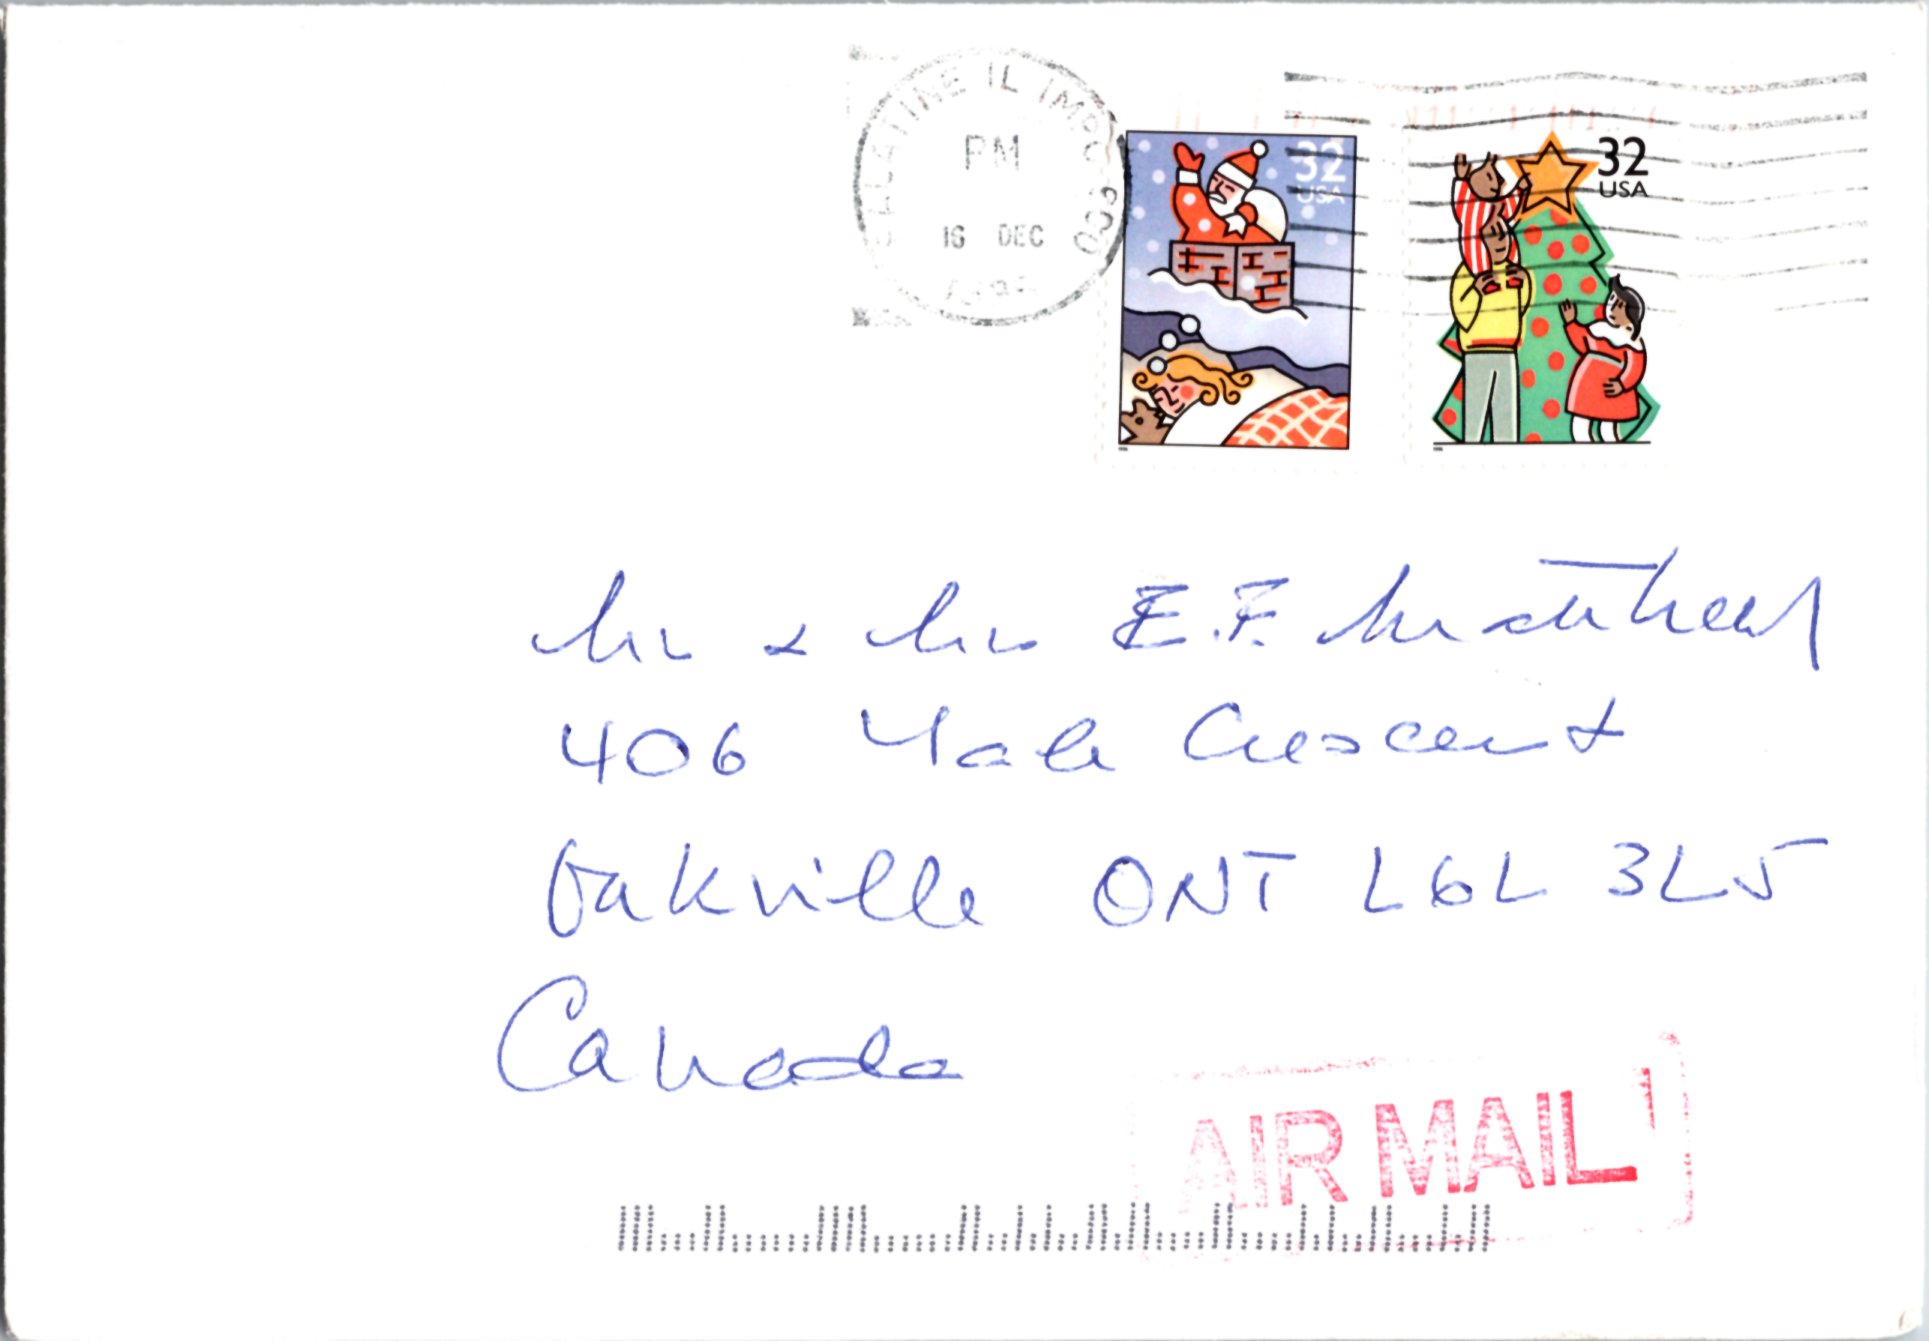 PALATINE IL IMPC 600
PM
16 DEC
32
USA
32
USA
Mr & Mrs E.F.
406 Yale Crescent
Oakville ONT L6L 3L5
Canada
AIR MAIL